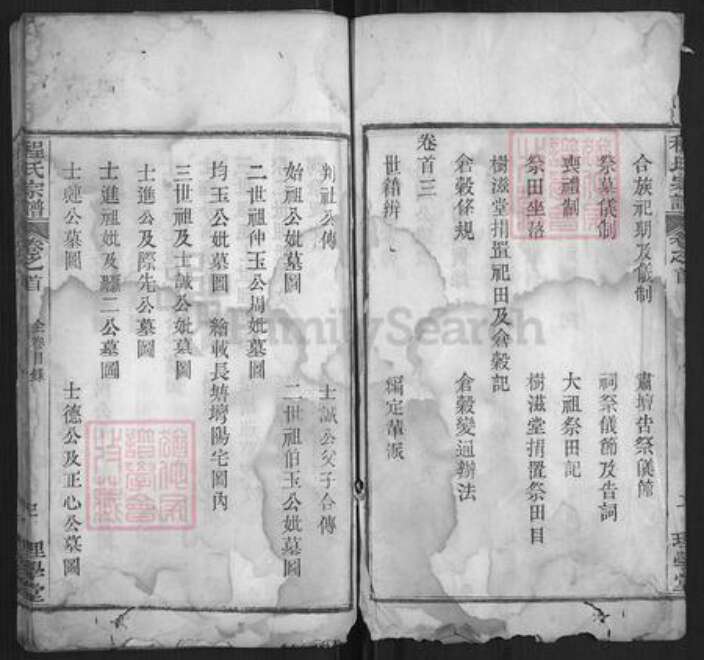 合族祀期及儀制 肅壇告祭儀節
祭墓儀制 祠祭儀節及告詞
喪禮制 大祖祭田記
祭田坐落 樹滋堂捐置祭田目
樹滋堂捐置祀田及倉穀記
倉穀條規 倉穀變通辦法
卷首三
世籍辨 編定輩派
程氏宗譜 卷之首
理學堂
判社公傳 士誠公父子合傳
始祖公妣墓圖 二世祖伯玉公妣墓圖
二世祖仲玉公周妣墓圖
均玉公妣墓圖 繪載長塘塆陽宅圖內
三世祖及士誠公妣墓圖
士進公及際先公墓圖
士進祖妣及 二公墓圖
士璉公墓圖 士德公及正心公墓圖
程氏宗譜 卷之首 全卷目錄 理學堂
FamilySearch